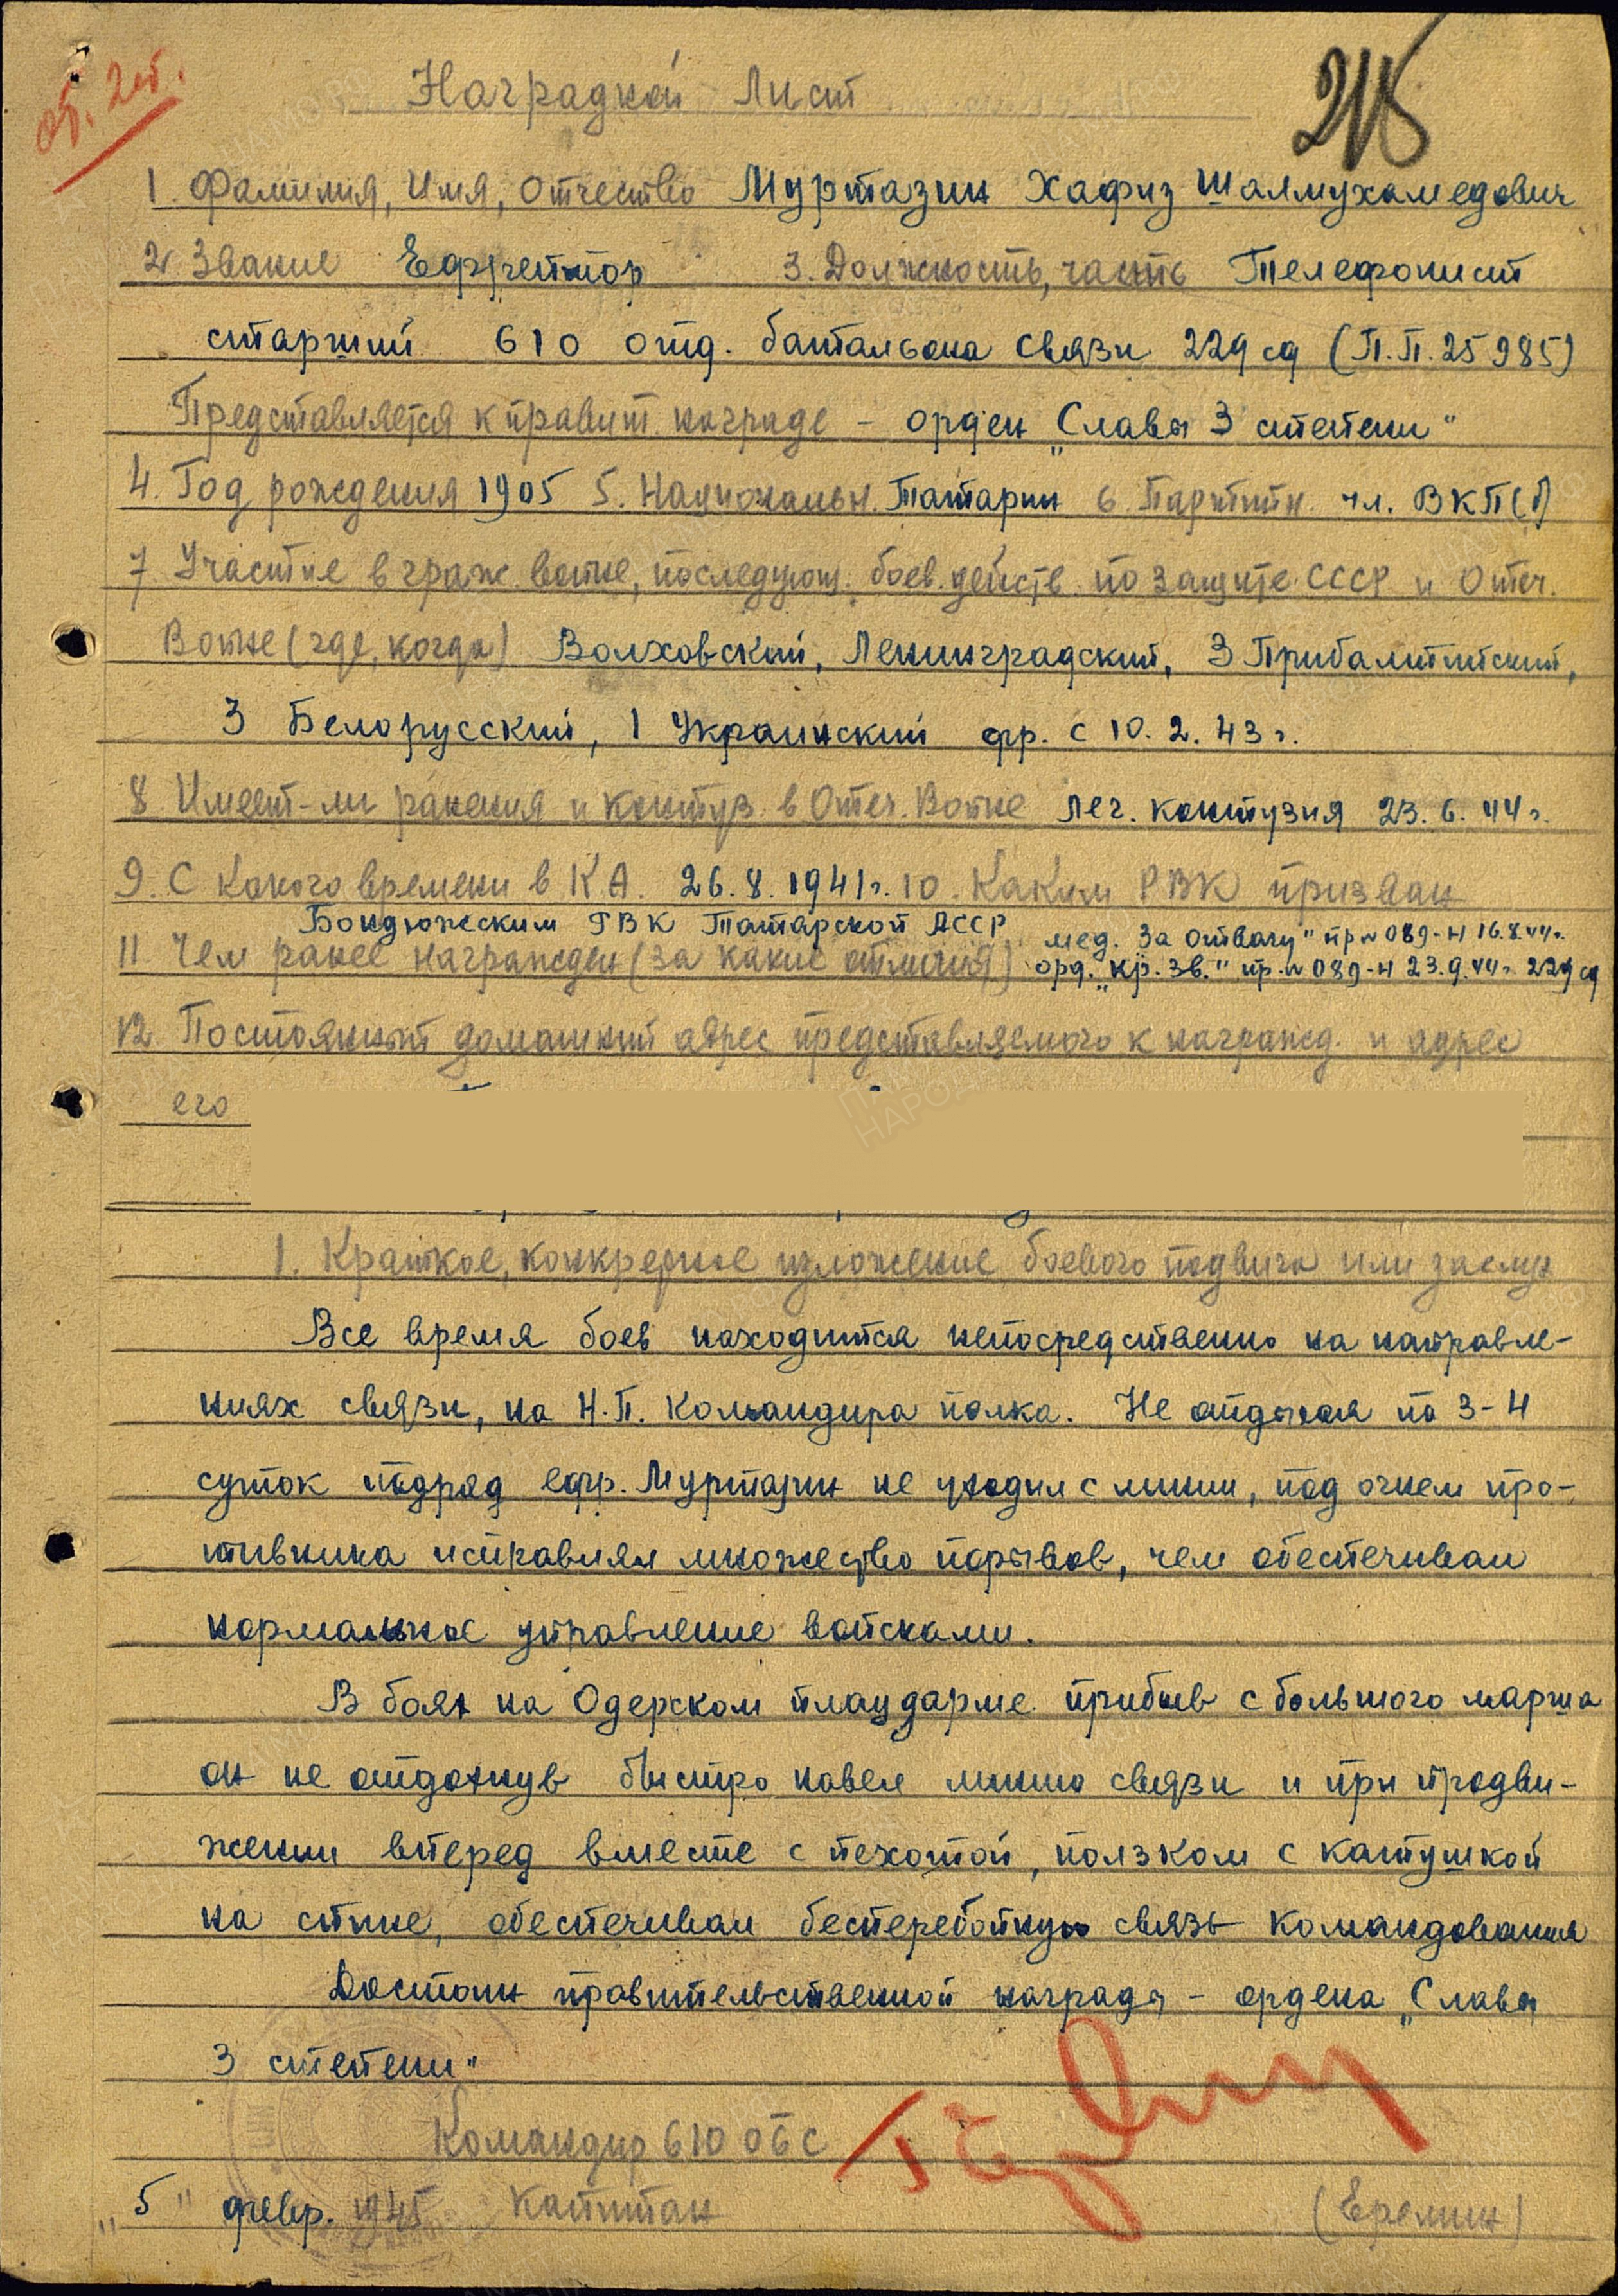 Наградной Лист
1. Фамилия, Имя, Отчество Муртазин Хафиз Шаямухамедович
2. Звание Ефрейтор 3. Должность, часть Телефонист
старший 610 отд. батальона связи 229 сд (П.П. 25985)
Представляется к правит. награде – орден „Славы 3 степени"
4. Год рождения 1905 5. Национальн. Татарин 6. Партийн. чл. ВКП(б)
7. Участие в граж. войне, последующ. боев. действ. по защите СССР и Отеч.
Войне (где, когда) Волховский, Ленинградский, 3 Прибалтийский,
3 Белорусский, 1 Украинский фр. с 10.2.43 г.
8. Имеет-ли ранения и контуз. в Отеч. Войне лег. контузия 23.6.44 г.
9. С какого времени в К.А. 26.8.1941 г. 10. Каким РВК призван
Бондюжским РВК Татарской АССР
11. Чем ранее награжден (за какие отличия) мед. За отвагу" пр № 089-н 16.8.44 г.
орд. „Кр. Зв." пр. № 089-н 23.9.44 г. 229 сд
12. Постоянный домашний адрес представляемого к награжд. и адрес
его
1. Краткое, конкретное изложение боевого подвига или заслуг
Все время боев находится непосредственно на направле-
ниях связи, на Н.П. командира полка. Не отдыхая по 3-4
суток подряд ефр. Муртазин не уходил с линии, под огнем про-
тивника исправлял множество порывов, чем обеспечивал
нормальное управление войсками.
В боях на Одерском плацдарме прибыв с большого марша
он не отдохнув быстро навел линию связи и при продви-
жении вперед вместе с пехотой, ползком с катушкой
на спине, обеспечивал бесперебойную связь командования
Достоин правительственной награды – ордена „Славы
3 степени"
Командир 610 ОБС
„5" февр. 1945 Капитан (Еремин)